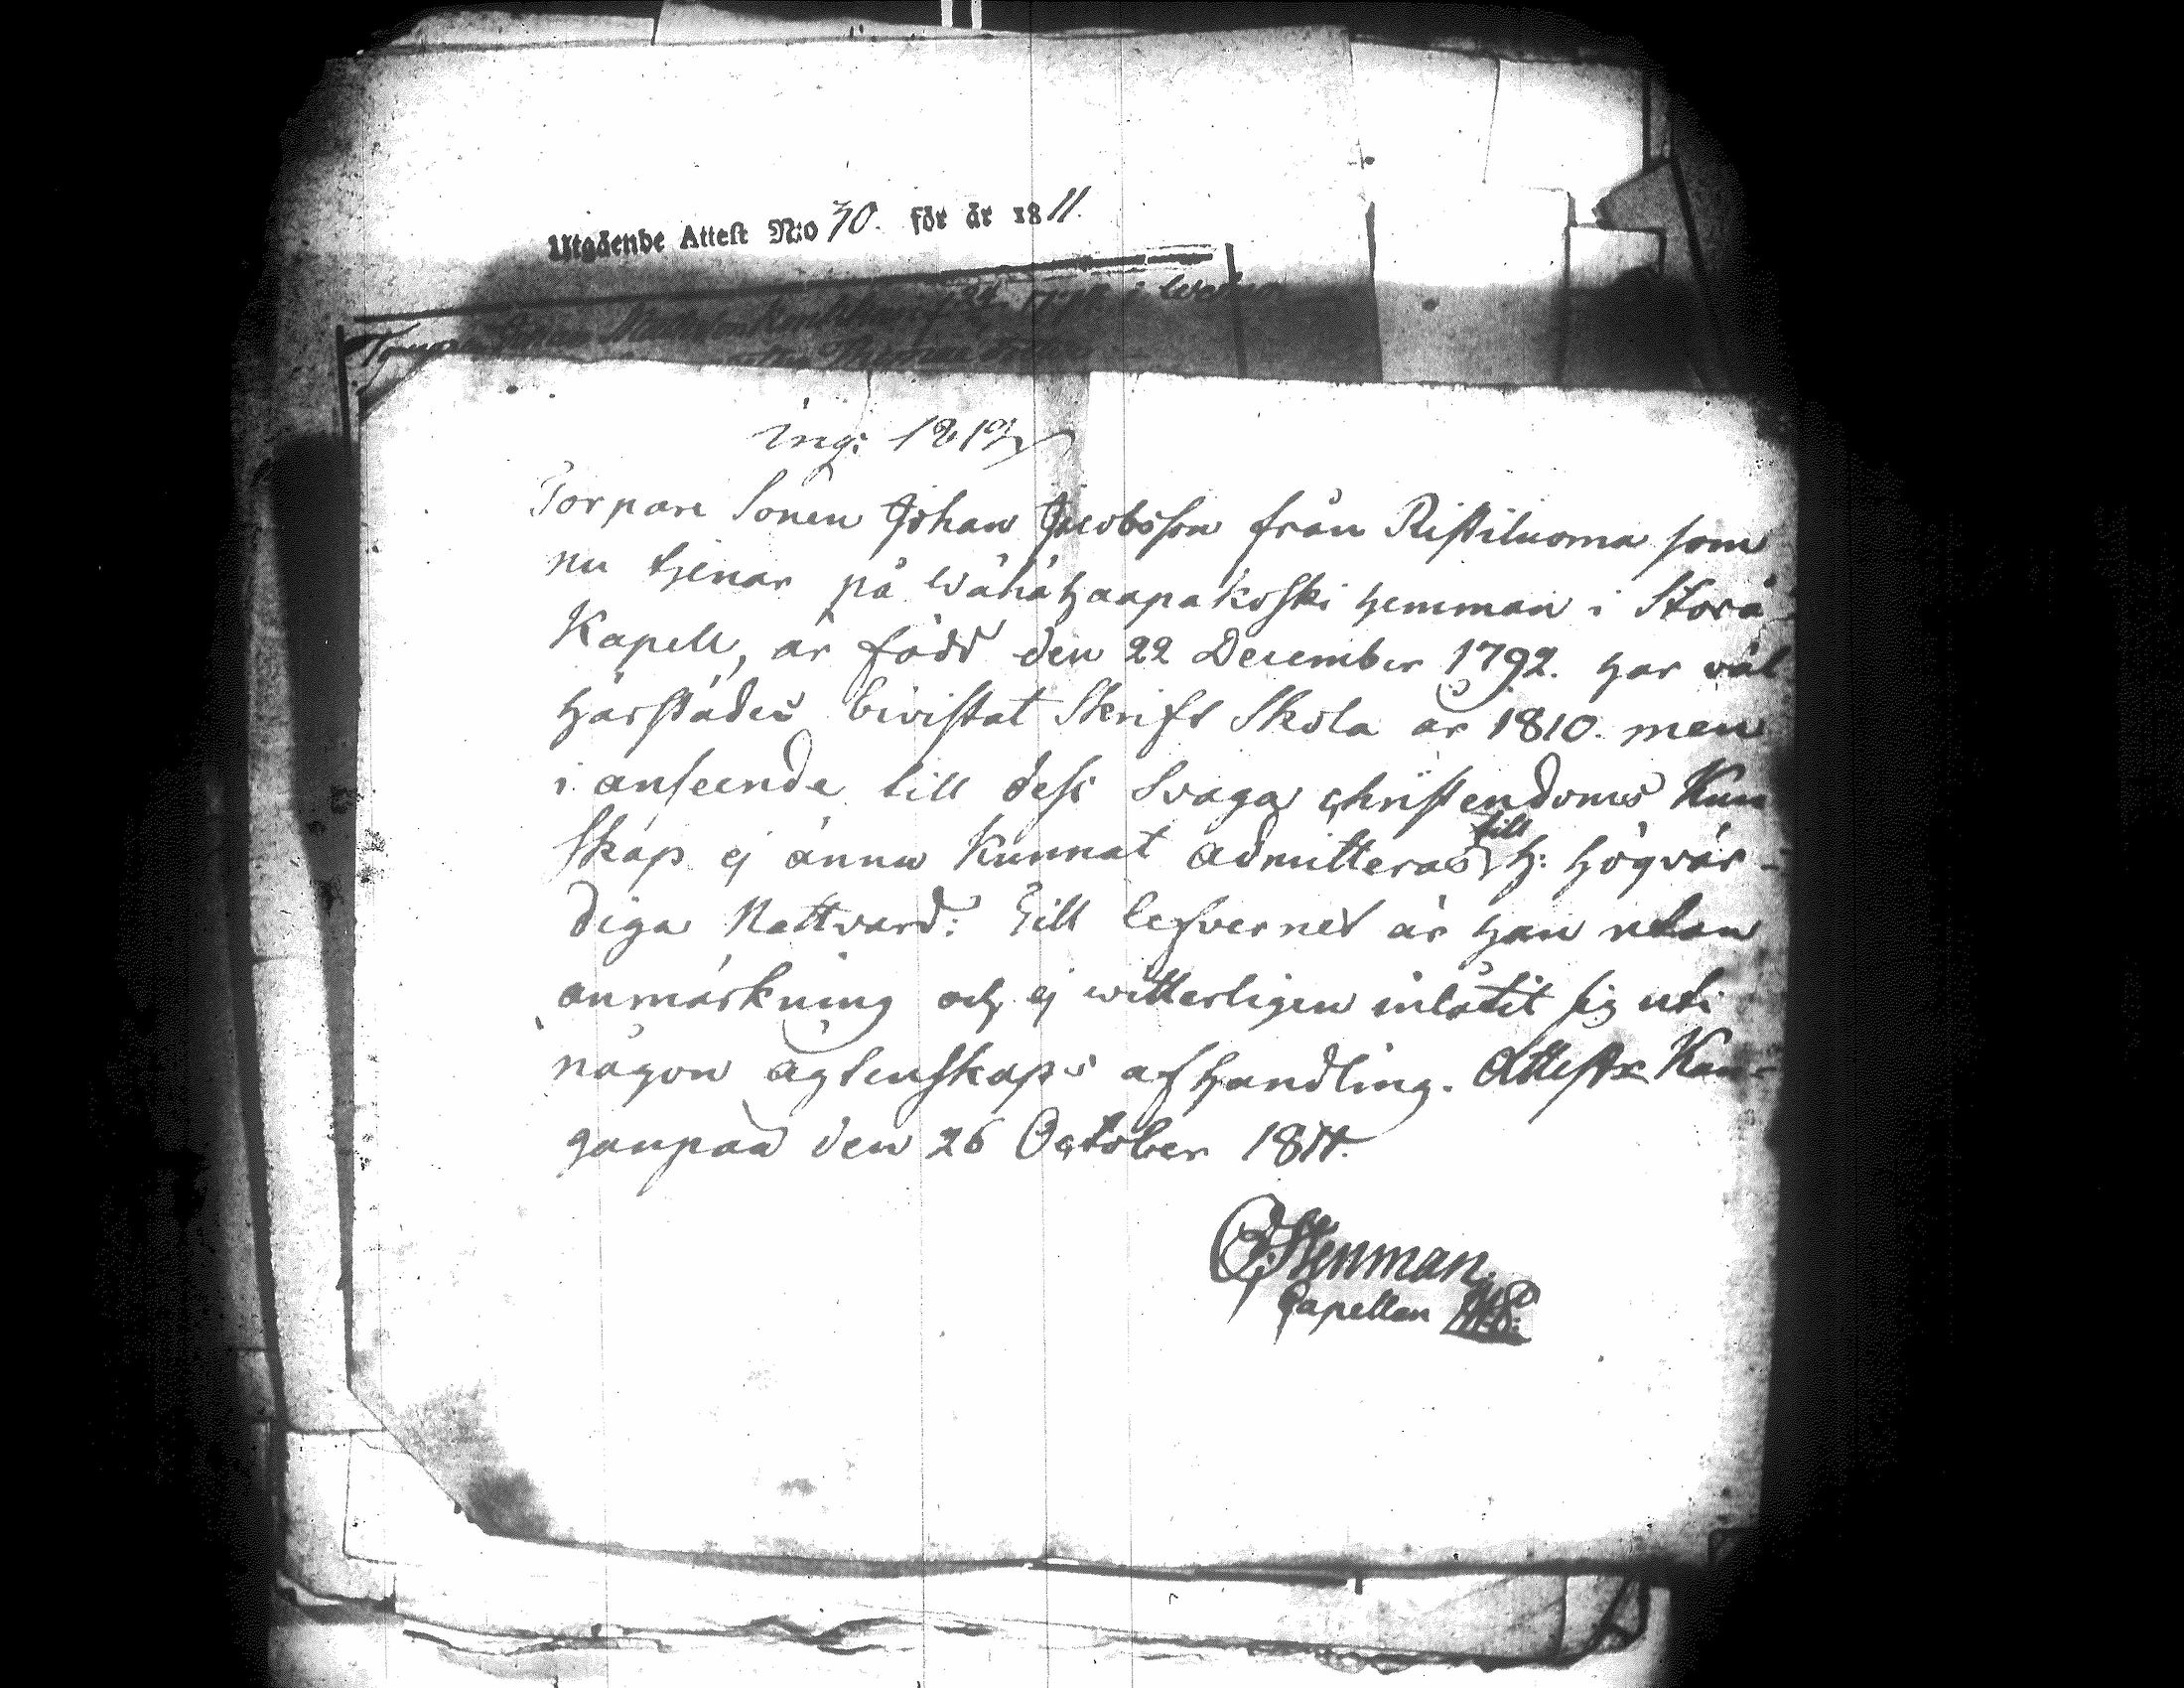 Utgående Attest N:o 30. för år 1811.
ing: 1812
Torpare Sonen Johan Jacobsson från Ristiluoma som
nu tjenar på Wähähaapakoski hemman i Storå
Kapell, är född den 22 December 1792. har väl
härstädes bivistat Skrift Skola år 1810. men
i anseende till dess Svaga christendoms Kun
skap ej ännu Kunnat admitteras till H: Högvär-
diga Nattvard: Till lefvernet är han utan
anmärkning och ej witterligen inlåtit sig uti
någon ägtenskaps afhandling. Attest Kan-
ganpää den 26 October 1811.
Stenman.
Capellan